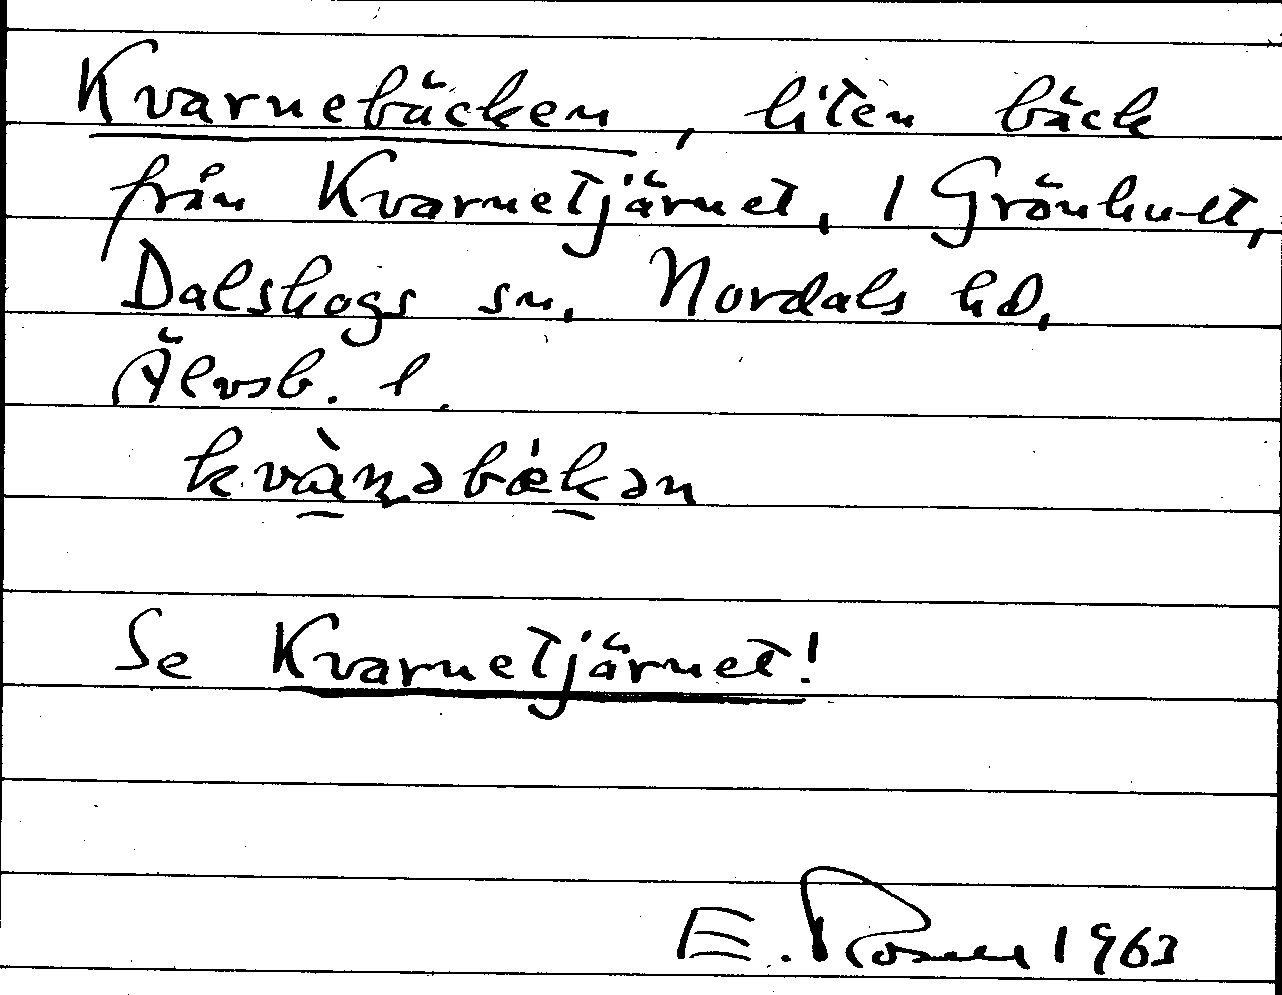 Kvarnebäcken, liten bäck
från Kvarnetjärnet, 1 Grönhult,
Dalskogs sn, Nordals hd,
Älvsb. l.
kvàɳəbækən
Se Kvarnetjärnet!
E. Rosell 1963